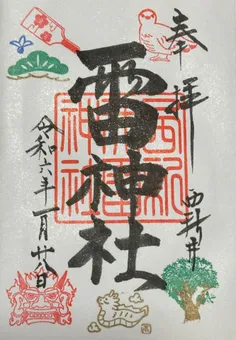 奉拝
西新井
雷神社
令和六年一月廿八日